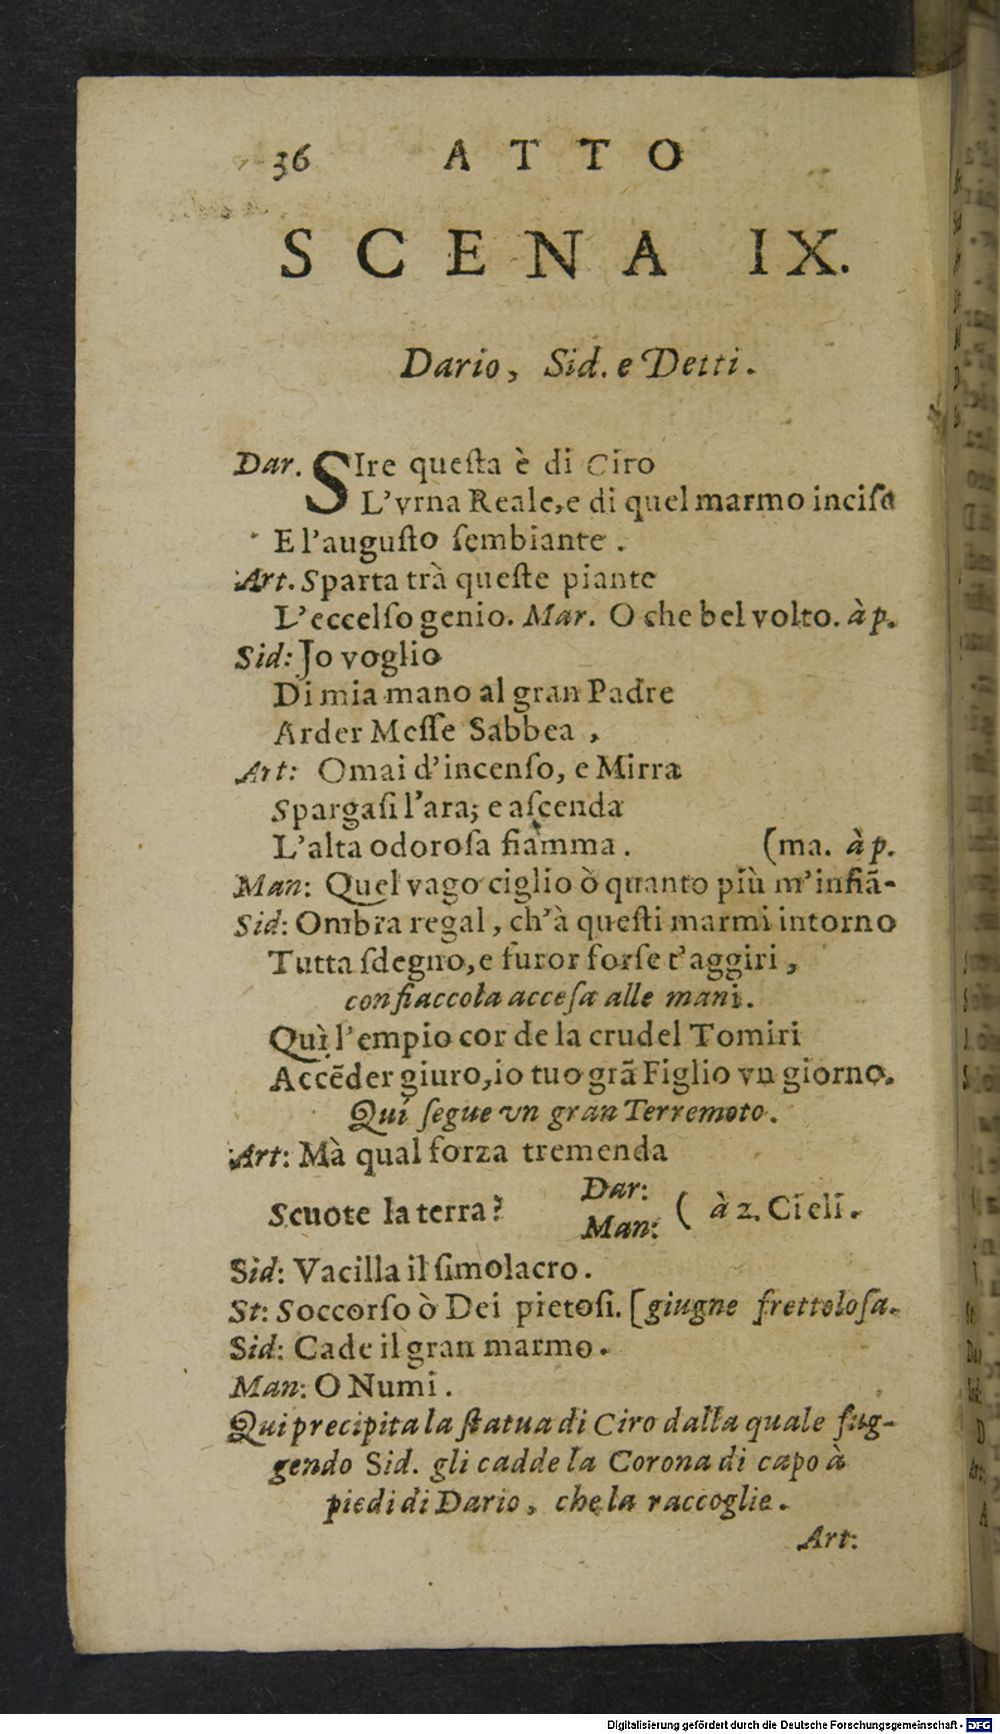 36 ATTO
SCENA IX.
Dario, Sid. e Detti.
Dar. SIre queſta è di Ciro
L'vrna Reale, e di quel marmo inciſo
E l'auguſto ſembiante.
Art. Sparta trà queſte piante
L'eccelſo genio. Mar. O che bel volto. à p.
Sid: Jo voglio
Di mia mano al gran Padre
Arder Meſſe Sabbea,
Art: Omai d'incenſo, e Mirra
Spargaſi l'ara; e aſcenda
L'alta odoroſa fiamma. (ma. à p.
Man: Quel vago ciglio ò quanto più m'infiã-
Sid: Ombra regal, ch'à queſti marmi intorno
Tutta ſdegno, e furor forſe t'aggiri,
con fiaccola acceſa alle mani.
Quì l'empio cor de la crudel Tomiri
Accẽder giuro, io tuo grã Figlio vn giorno.
Quì ſegue vn gran Terremoto.
Art: Mà qual forza tremenda
Scuote la terra? Dar: Man: ( à 2. Cieli.
Sid: Vacilla il ſimolacro.
St: Soccorſo ò Dei pietoſi. [giugne frettoloſa.
Sid: Cade il gran marmo.
Man: O Numi.
Qui precipita la ſtatua di Ciro dalla quale fug-
gendo Sid. gli cadde la Corona di capo à
piedi di Dario, che la raccoglie.
Art:
Digitalisierung gefördert durch die Deutsche Forschungsgemeinschaft - DFG